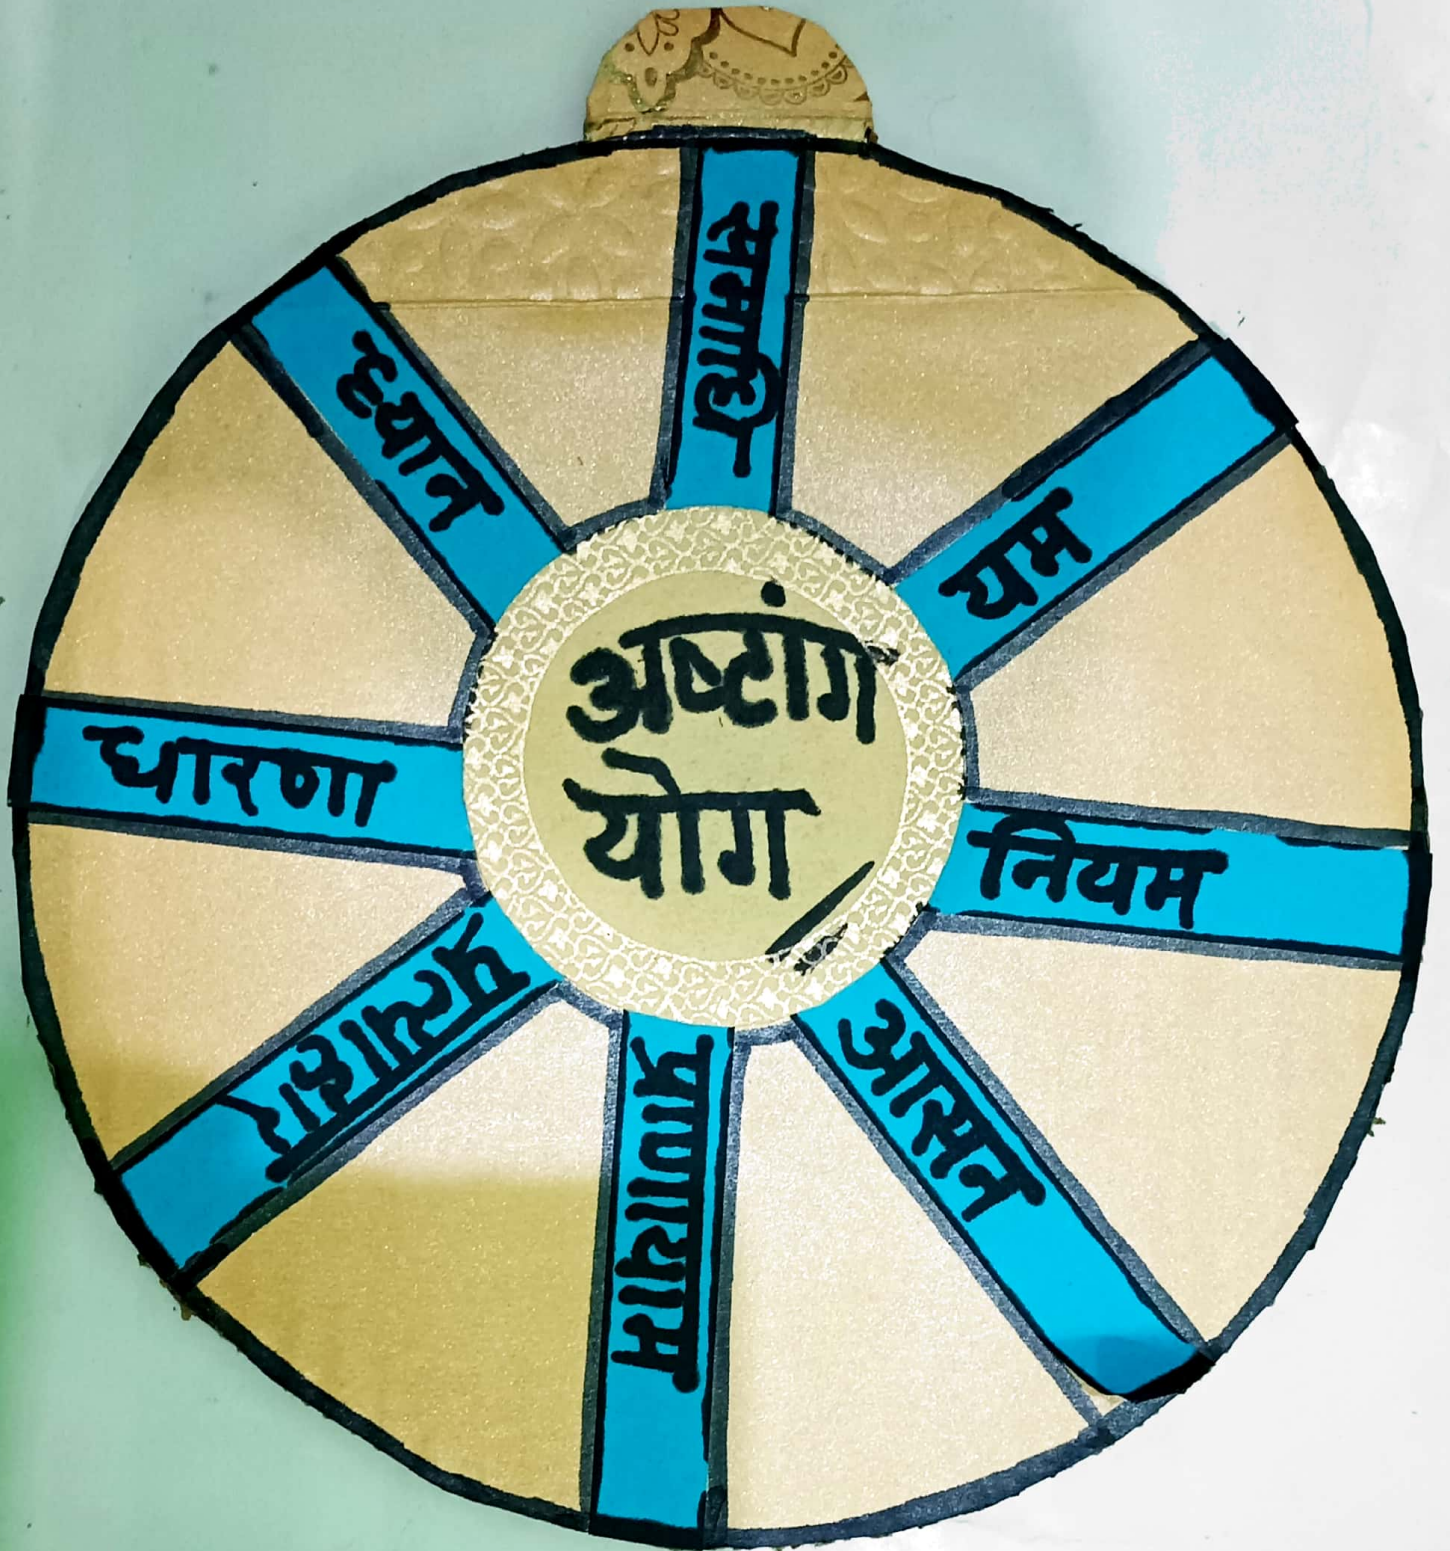 अष्टांग
योग
यम
नियम
आसन
प्राणायाम
प्रत्याहार
धारणा
ध्यान
समाधि